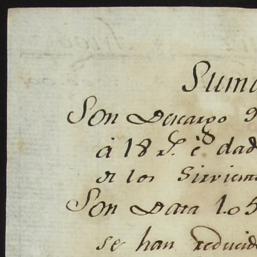 Suma
Son Descargo
á 18 rs. cs. dad
de los Sirvien
Son Data los
se han reducid